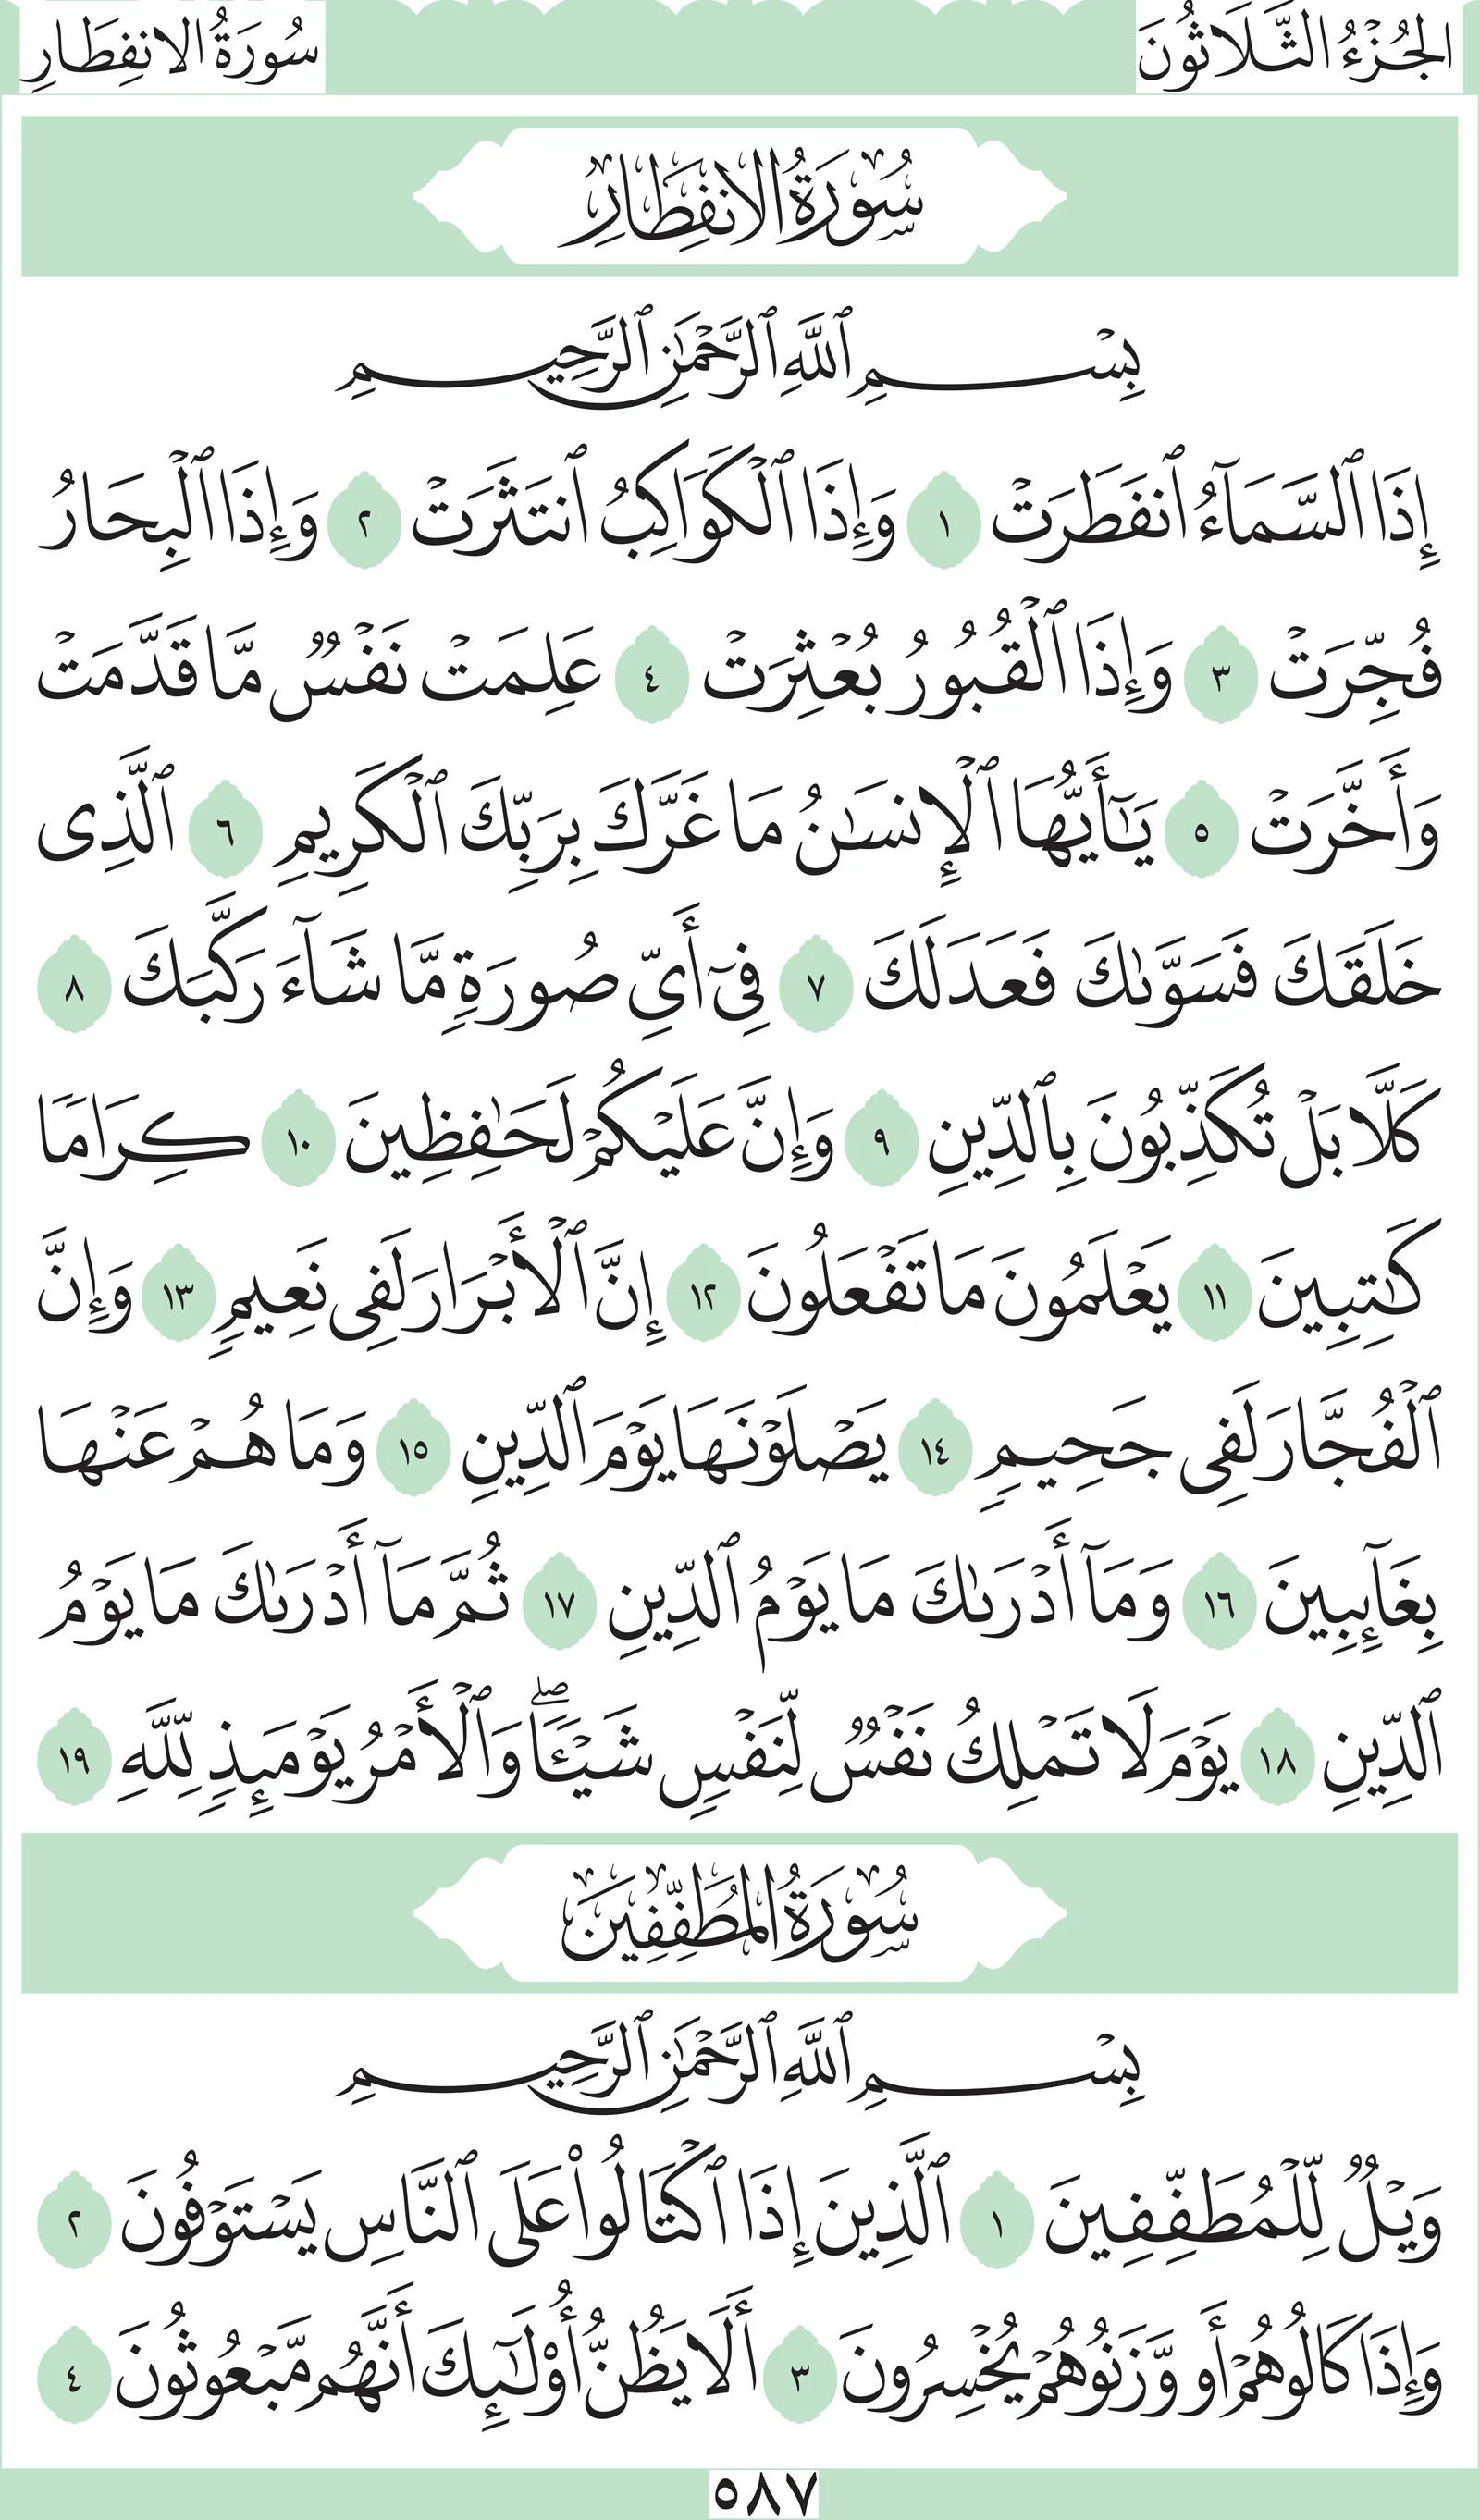 الجُزْءُ الثَّلَاثُونَ
سُورَةُ الانفِطَارِ
سُورَةُ الانفِطَارِ
بِسۡمِ ٱللَّهِ ٱلرَّحۡمَٰنِ ٱلرَّحِيمِ
إِذَا ٱلسَّمَآءُ ٱنفَطَرَتۡ ١ وَإِذَا ٱلۡكَوَاكِبُ ٱنتَثَرَتۡ ٢ وَإِذَا ٱلۡبِحَارُ
فُجِّرَتۡ ٣ وَإِذَا ٱلۡقُبُورُ بُعۡثِرَتۡ ٤ عَلِمَتۡ نَفۡسٞ مَّا قَدَّمَتۡ
وَأَخَّرَتۡ ٥ يَٰٓأَيُّهَا ٱلۡإِنسَٰنُ مَا غَرَّكَ بِرَبِّكَ ٱلۡكَرِيمِ ٦ ٱلَّذِى
خَلَقَكَ فَسَوَّىٰكَ فَعَدَلَكَ ٧ فِىٓ أَىِّ صُورَةٖ مَّا شَآءَ رَكَّبَكَ ٨
كَلَّا بَلۡ تُكَذِّبُونَ بِٱلدِّينِ ٩ وَإِنَّ عَلَيۡكُمۡ لَحَٰفِظِينَ ١٠ كِرَامٗا
كَٰتِبِينَ ١١ يَعۡلَمُونَ مَا تَفۡعَلُونَ ١٢ إِنَّ ٱلۡأَبۡرَارَ لَفِى نَعِيمٖ ١٣ وَإِنَّ
ٱلۡفُجَّارَ لَفِى جَحِيمٖ ١٤ يَصۡلَوۡنَهَا يَوۡمَ ٱلدِّينِ ١٥ وَمَا هُمۡ عَنۡهَا
بِغَآئِبِينَ ١٦ وَمَآ أَدۡرَىٰكَ مَا يَوۡمُ ٱلدِّينِ ١٧ ثُمَّ مَآ أَدۡرَىٰكَ مَا يَوۡمُ
ٱلدِّينِ ١٨ يَوۡمَ لَا تَمۡلِكُ نَفۡسٞ لِّنَفۡسٖ شَيۡـٔٗاۖ وَٱلۡأَمۡرُ يَوۡمَئِذٖ لِّلَّهِ ١٩
سُورَةُ المُطَفِّفِينَ
بِسۡمِ ٱللَّهِ ٱلرَّحۡمَٰنِ ٱلرَّحِيمِ
وَيۡلٞ لِّلۡمُطَفِّفِينَ ١ ٱلَّذِينَ إِذَا ٱكۡتَالُواْ عَلَى ٱلنَّاسِ يَسۡتَوۡفُونَ ٢
وَإِذَا كَالُوهُمۡ أَو وَّزَنُوهُمۡ يُخۡسِرُونَ ٣ أَلَا يَظُنُّ أُوْلَٰٓئِكَ أَنَّهُم مَّبۡعُوثُونَ ٤
٥٨٧